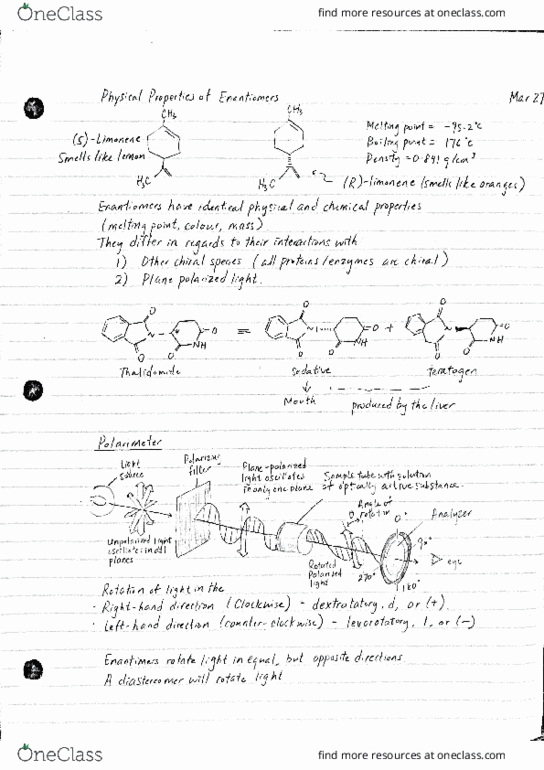 OneClass find more resources at oneclass.com
Physical Properties of Enantiomers Mar 27
CH₃ CH₃
(S)-Limonene
Smells like lemon
Melting point = -95.2°C
Boiling point = 176°C
Density = 0.841 g/cm³
H₃C H₃C
(R)-limonene (smells like oranges)
Enantiomers have identical physical and chemical properties
(melting point, colour, mass)
They differ in regards to their interactions with
1) Other chiral species (all proteins/enzymes are chiral)
2) Plane polarized light.
O O O
N =O = N =O + N =O
NH NH NH
O O O O O O
Thalidomide Sedative Teratogen
Mouth produced by the liver
Polarimeter
Light source
Polarizing filter
Plane-polarized light oscillates in only one plane
Sample tube with solution of optically active substance.
Angle of rotation
0°
Analyzer
90°
eye
180°
270°
Unpolarized light oscillates in all planes
Rotated Polarized light
Rotation of light in the
· Right-hand direction (Clockwise) - dextrotatory, d, or (+).
· Left-hand direction (counter-clockwise) - levorotatory, l, or (-)
Enantimers rotate light in equal, but opposite directions.
A diastereomer will rotate light
OneClass find more resources at oneclass.com